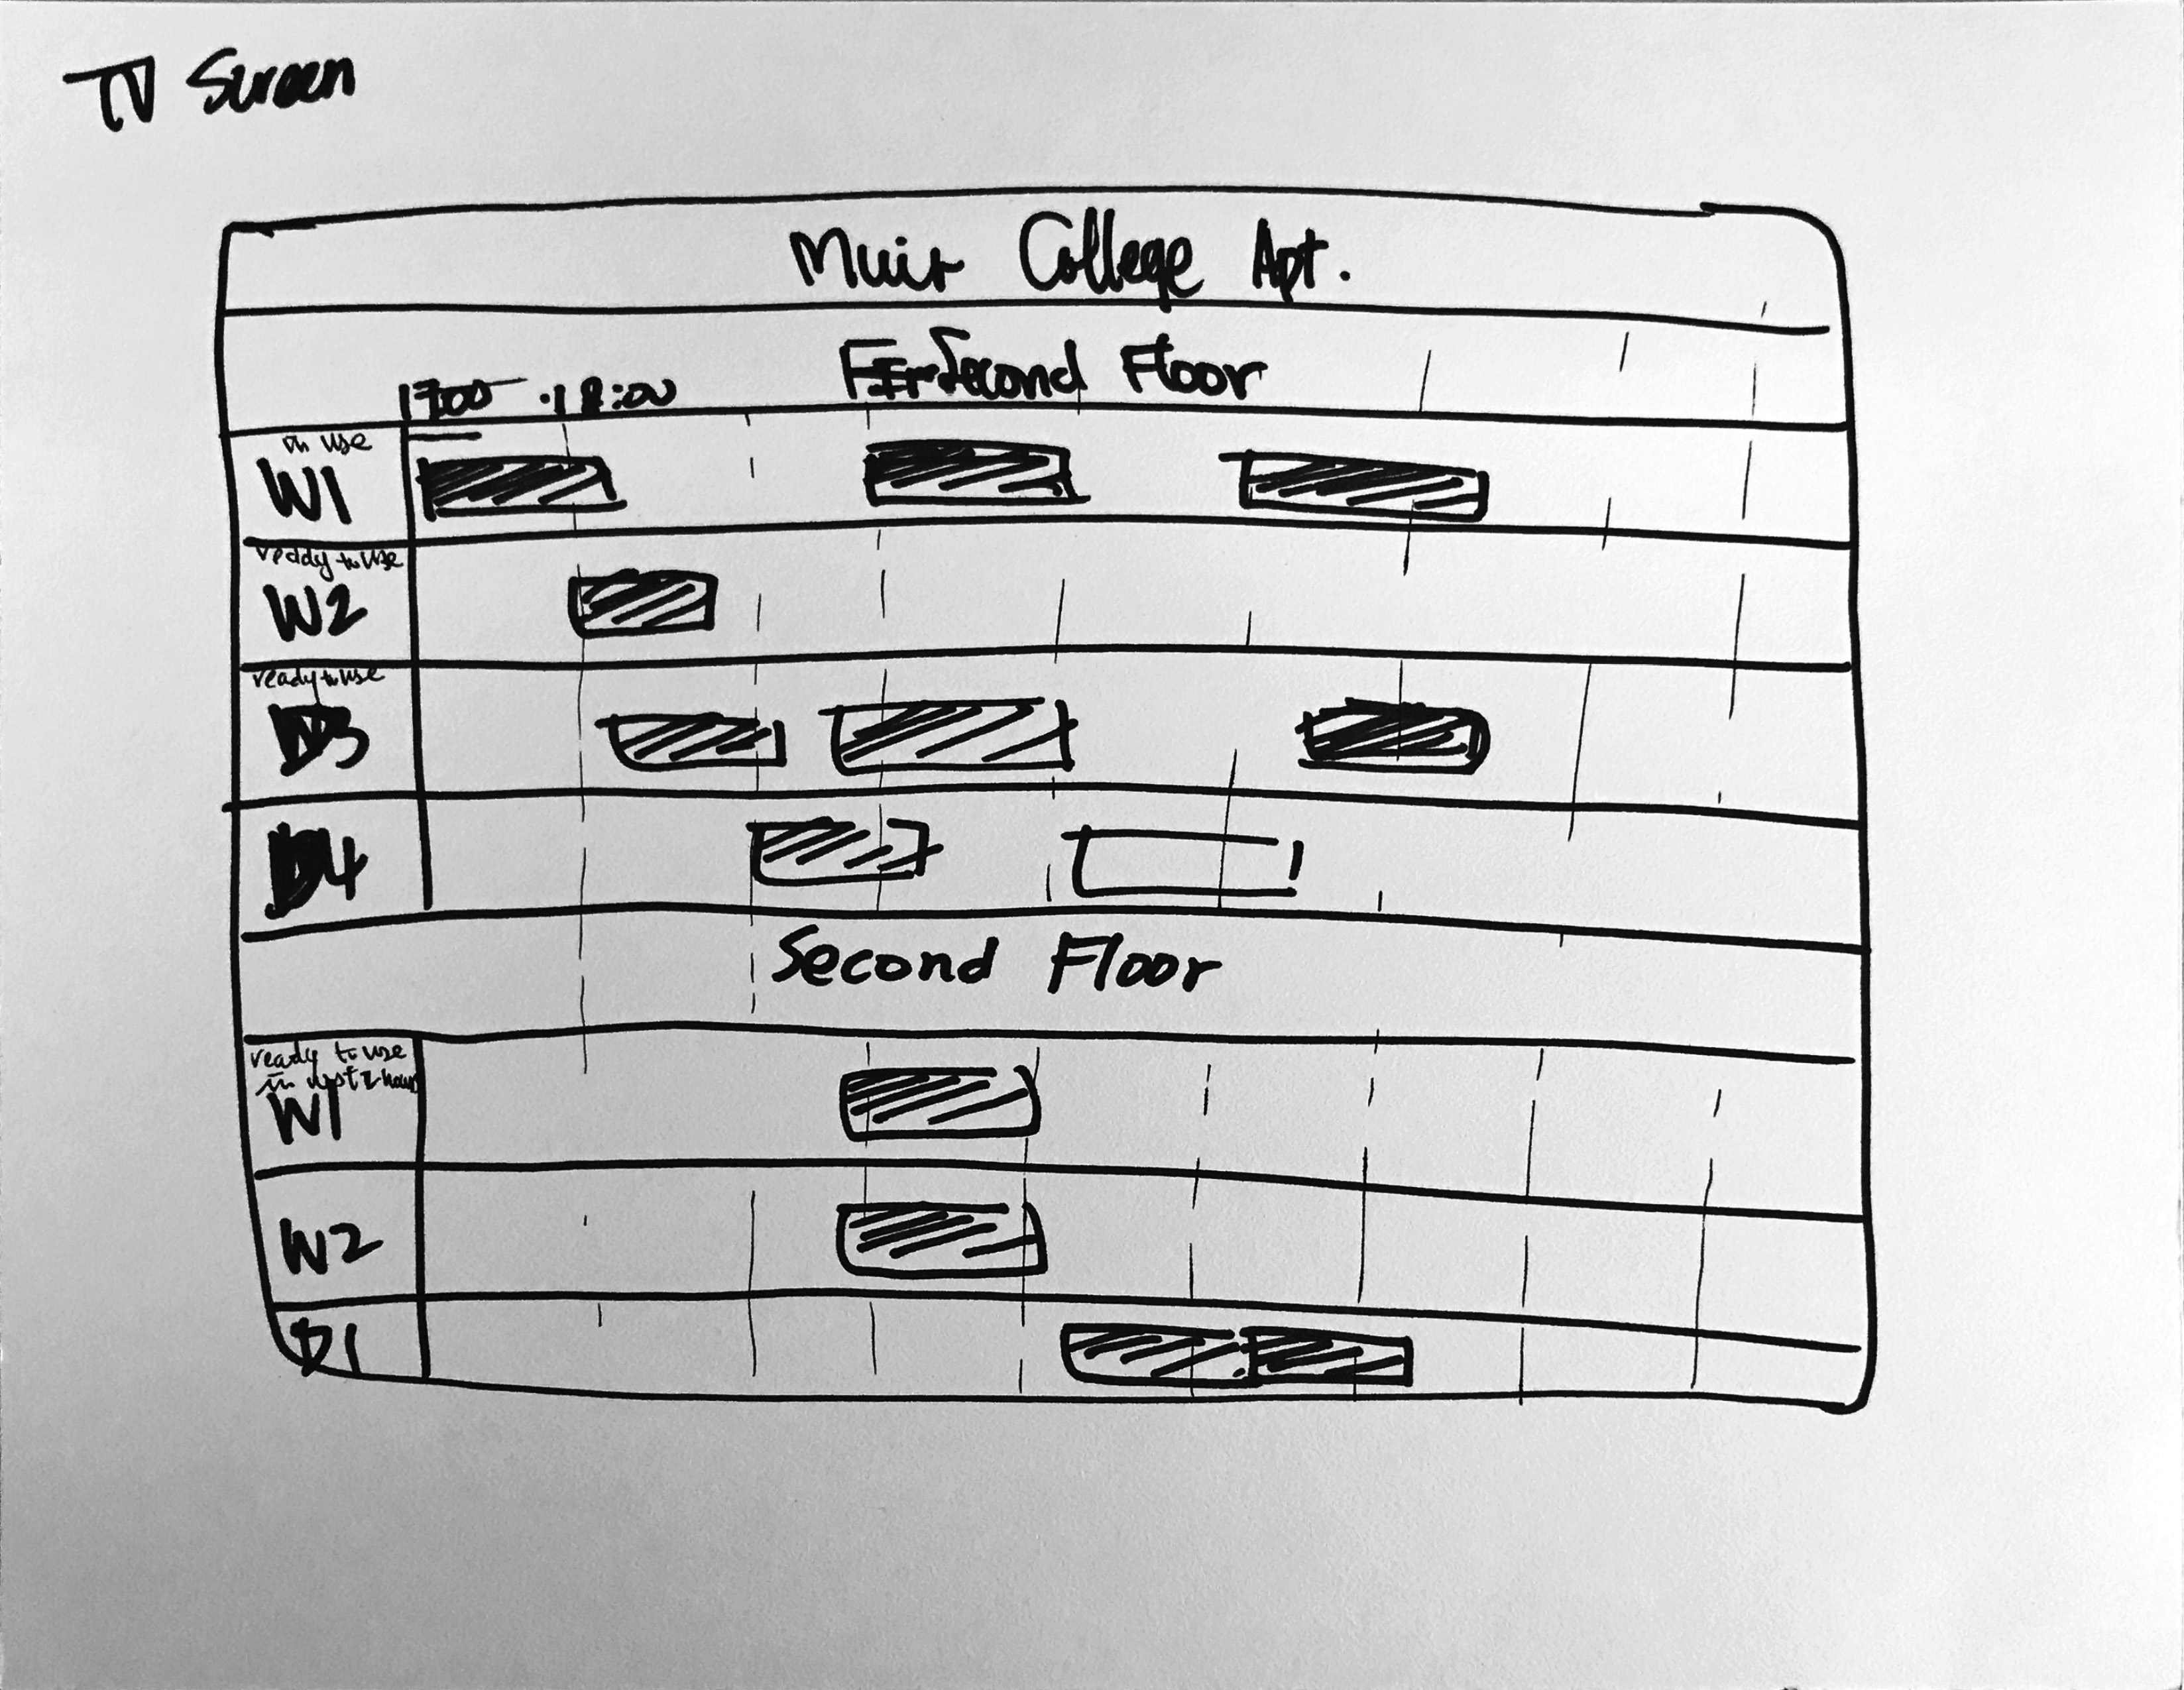 TV Screen
Muir College Apt.
Second Floor
1700 18:00
in use
W1
ready to use
W2
ready to use
D3
D4
Second Floor
ready to use
in next 2 hours
W1
W2
D1